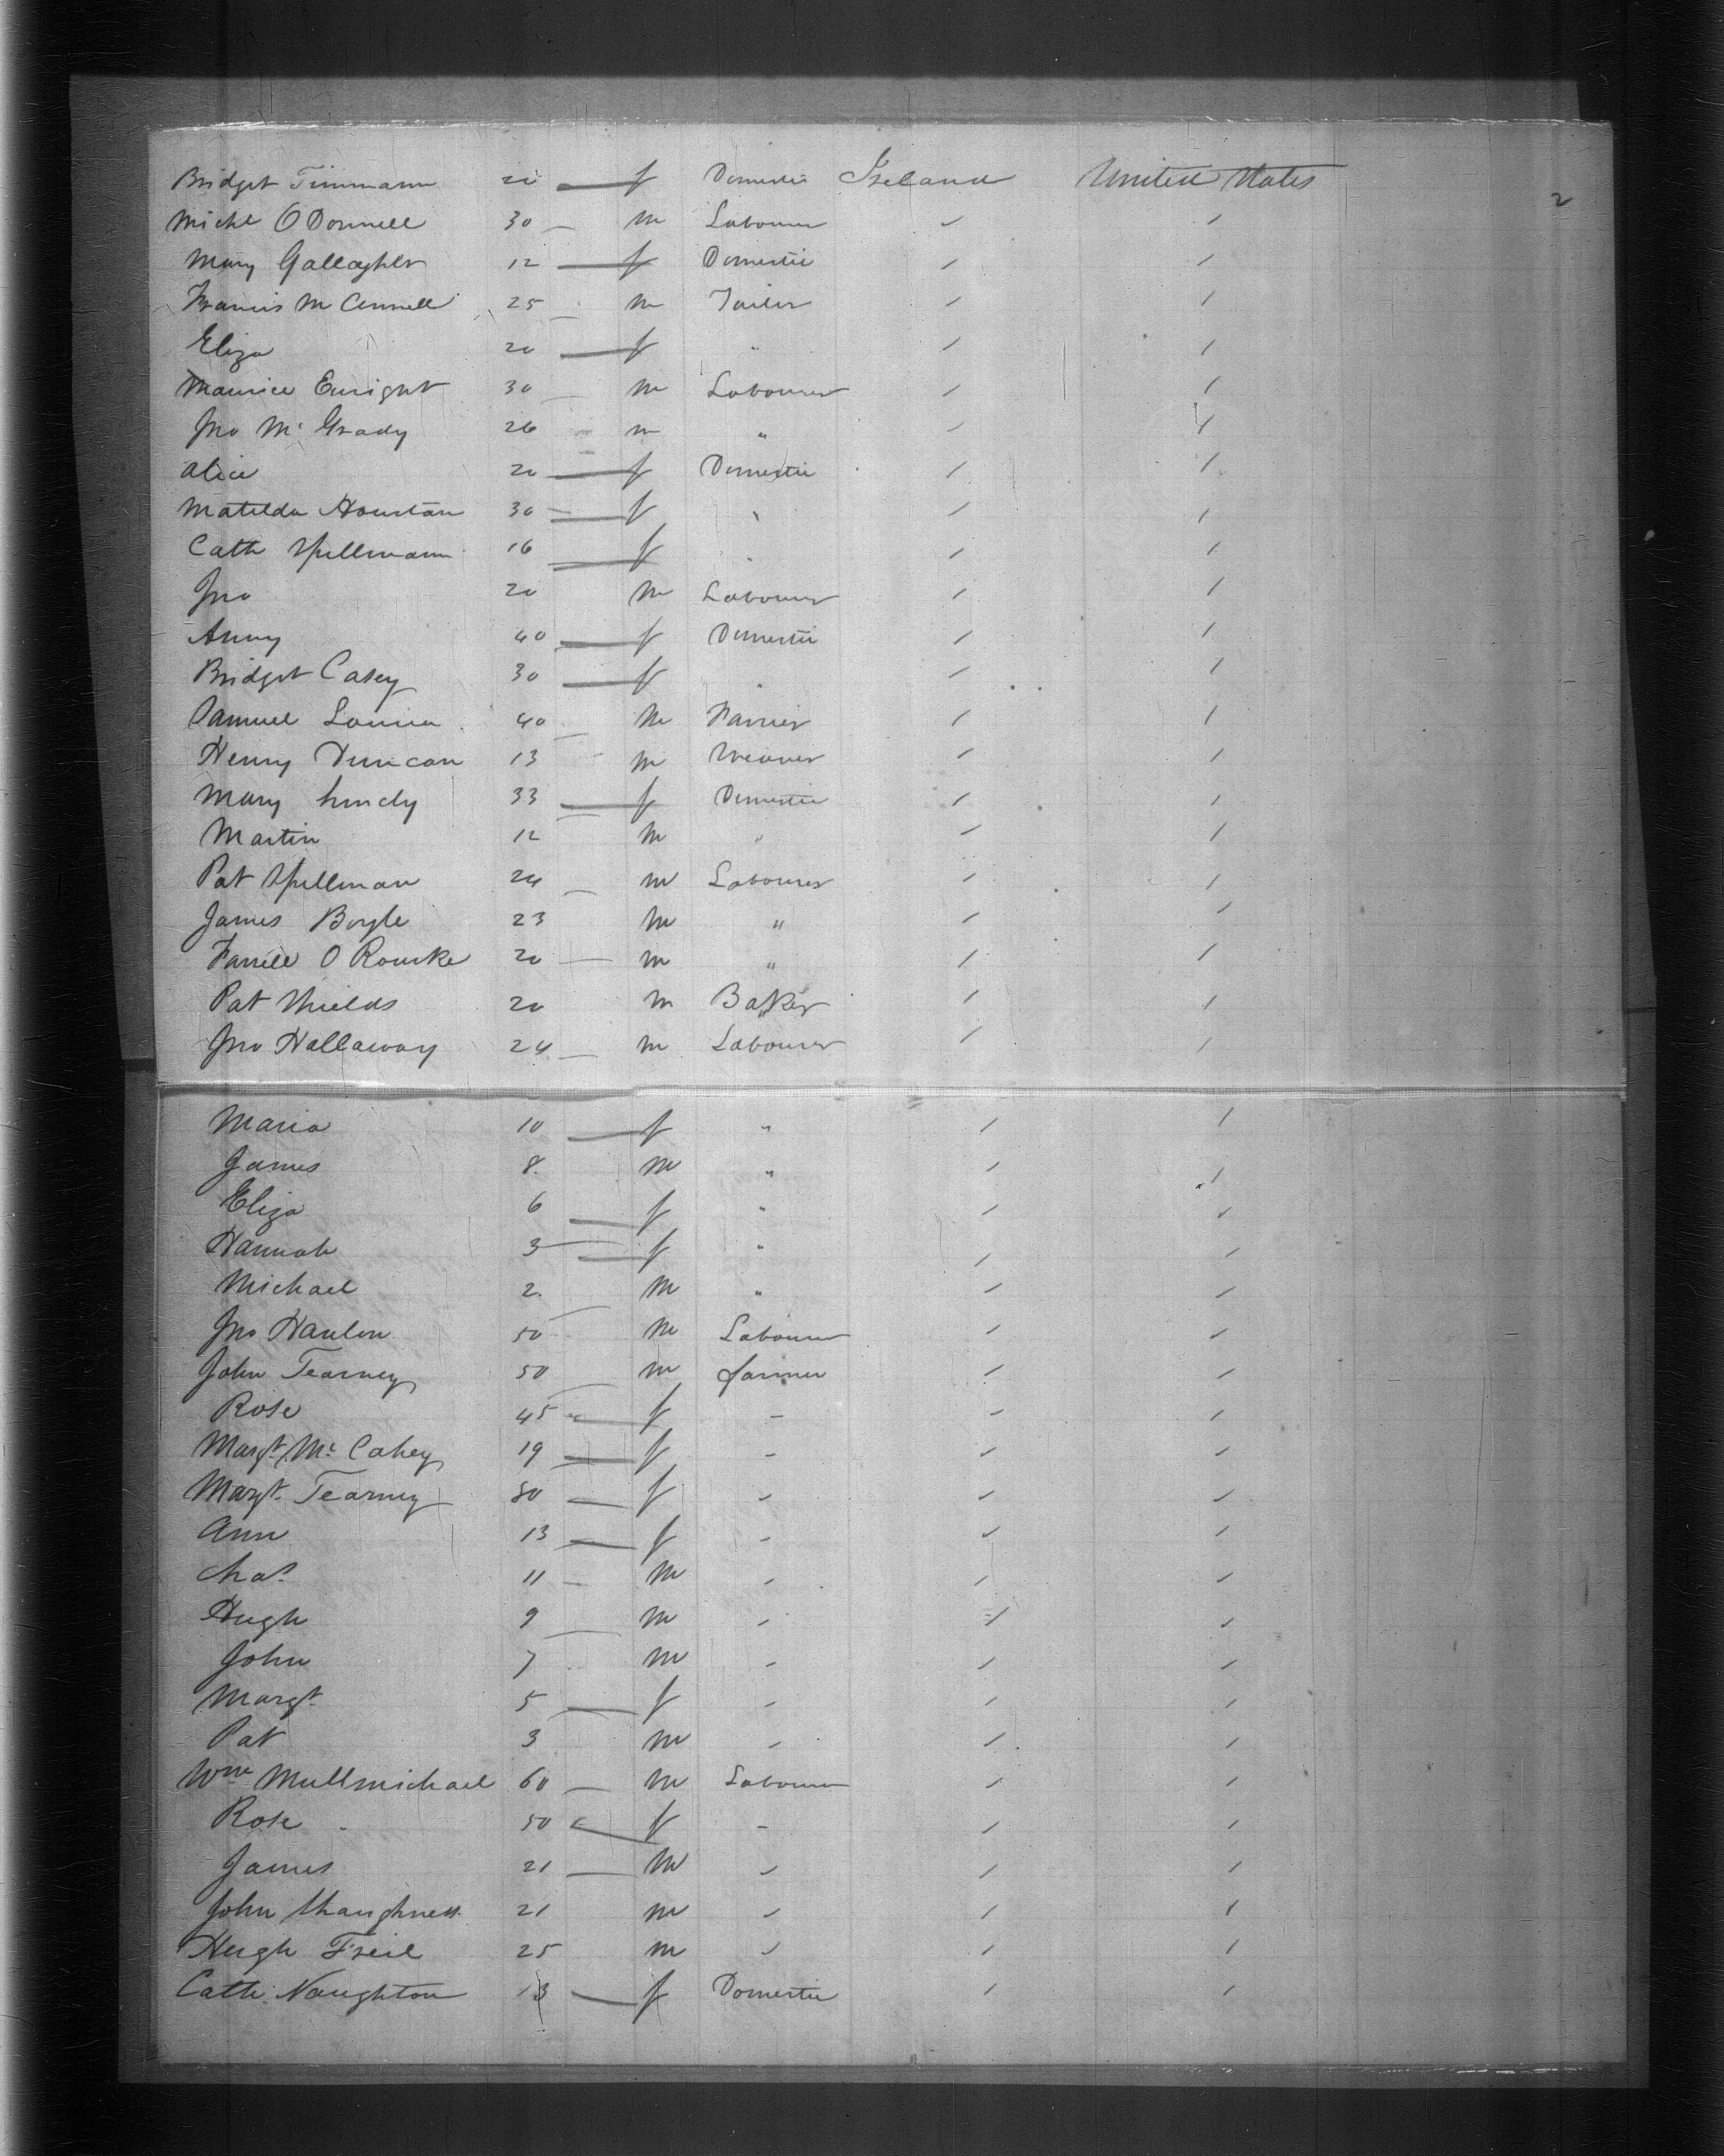 Bridget Timmann 20 f Domestic Ireland United States
2
Michl O Donnell 30 m Labourer
Mary Gallagher 12 f Domestic
Francis McConnell 25 m Tailor
Eliza 20 f "
Maurice Enright 30 m Labourer
Jno Mc Grady 26 m "
Alice 20 f Domestic
Matilda Houstan 30 f "
Cath Spellmann 16 f "
Jno 20 m Labourer
Anny 40 f Domestic
Bridget Casey 30 f "
Samuel 40 m
Henry Duncan 13 m Weaver
Mary 33 f Domestic
Martin 12 m "
Pat Spellman 24 m Labourer
James Boyle 23 m "
Farrell O Rourke 20 m "
Pat Shields 20 m Baker
Jno Hallaway 24 m Labourer
Maria 10 f "
James 8 m "
Eliza 6 f "
Hannah 3 f "
Michael 2 m "
Jno Hanlon 50 m Labourer
John Tearney 50 m farmer
Rose 45 f -
Margt. Mc Cahey 19 f -
Margt. Tearney 80 f
Ann 13 f
Chas. 11 m
Hugh 9 m
John 7 m
Margt. 5 f
Pat 3 m
Wm Mullmichael 60 m Labourer
Rose 50 f -
James 21 m
John Shaughness 21 m
Hugh Freil 25 m
Cath. Naughton 13 f Domestic